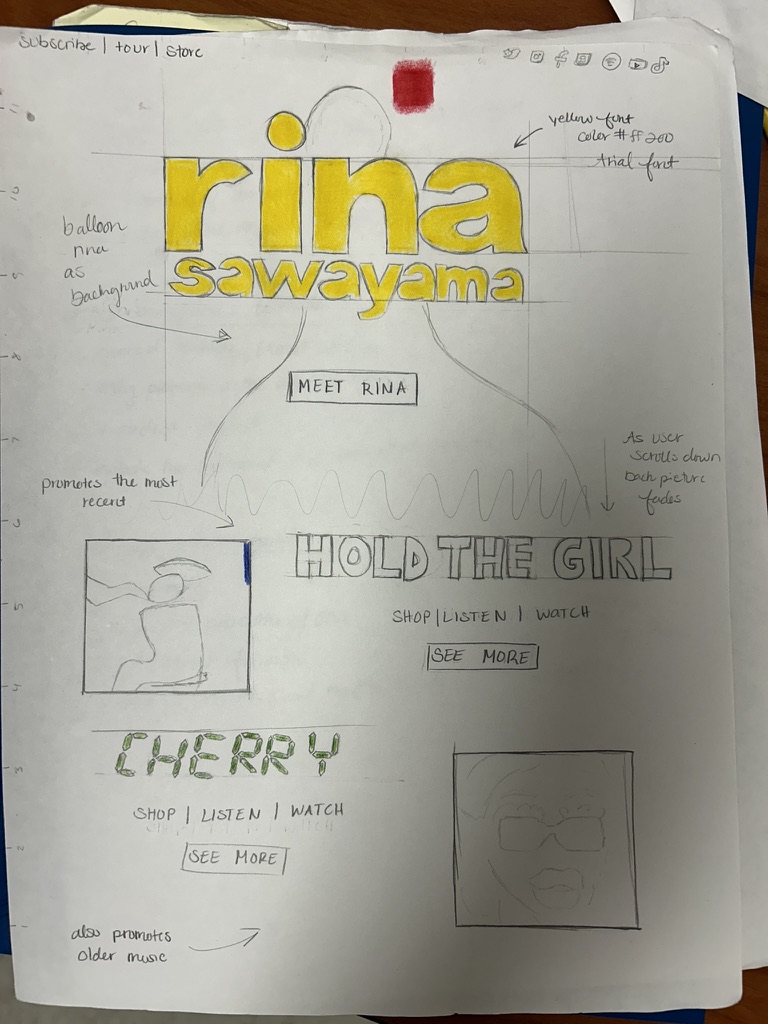 subscribe | tour | store
yellow font
color #ff200
Arial font
rina
sawayama
balloon
rina
as
background
MEET RINA
As user
scrolls down
back picture
fades
promotes the most
recent
HOLD THE GIRL
SHOP | LISTEN | WATCH
SEE MORE
CHERRY
SHOP | LISTEN | WATCH
SEE MORE
also promotes
older music